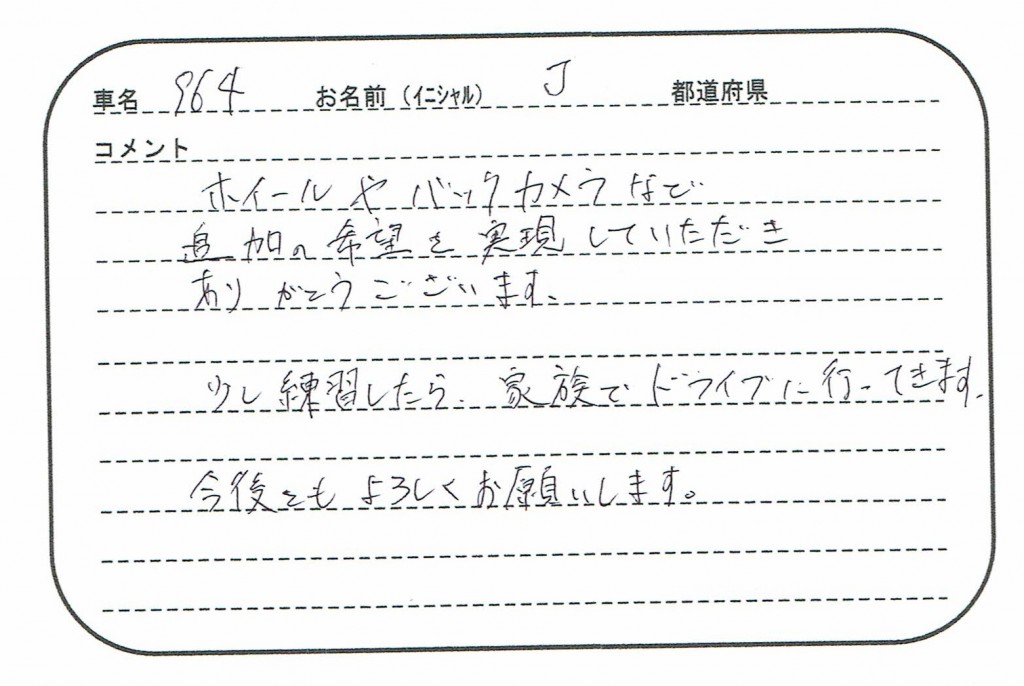 車名 964 お名前（イニシャル） J 都道府県
コメント
ホイールやバックカメラなど
追加の希望を実現していただき
ありがとうございます。
少し練習したら、家族でドライブに行ってきます。
今後ともよろしくお願いします。